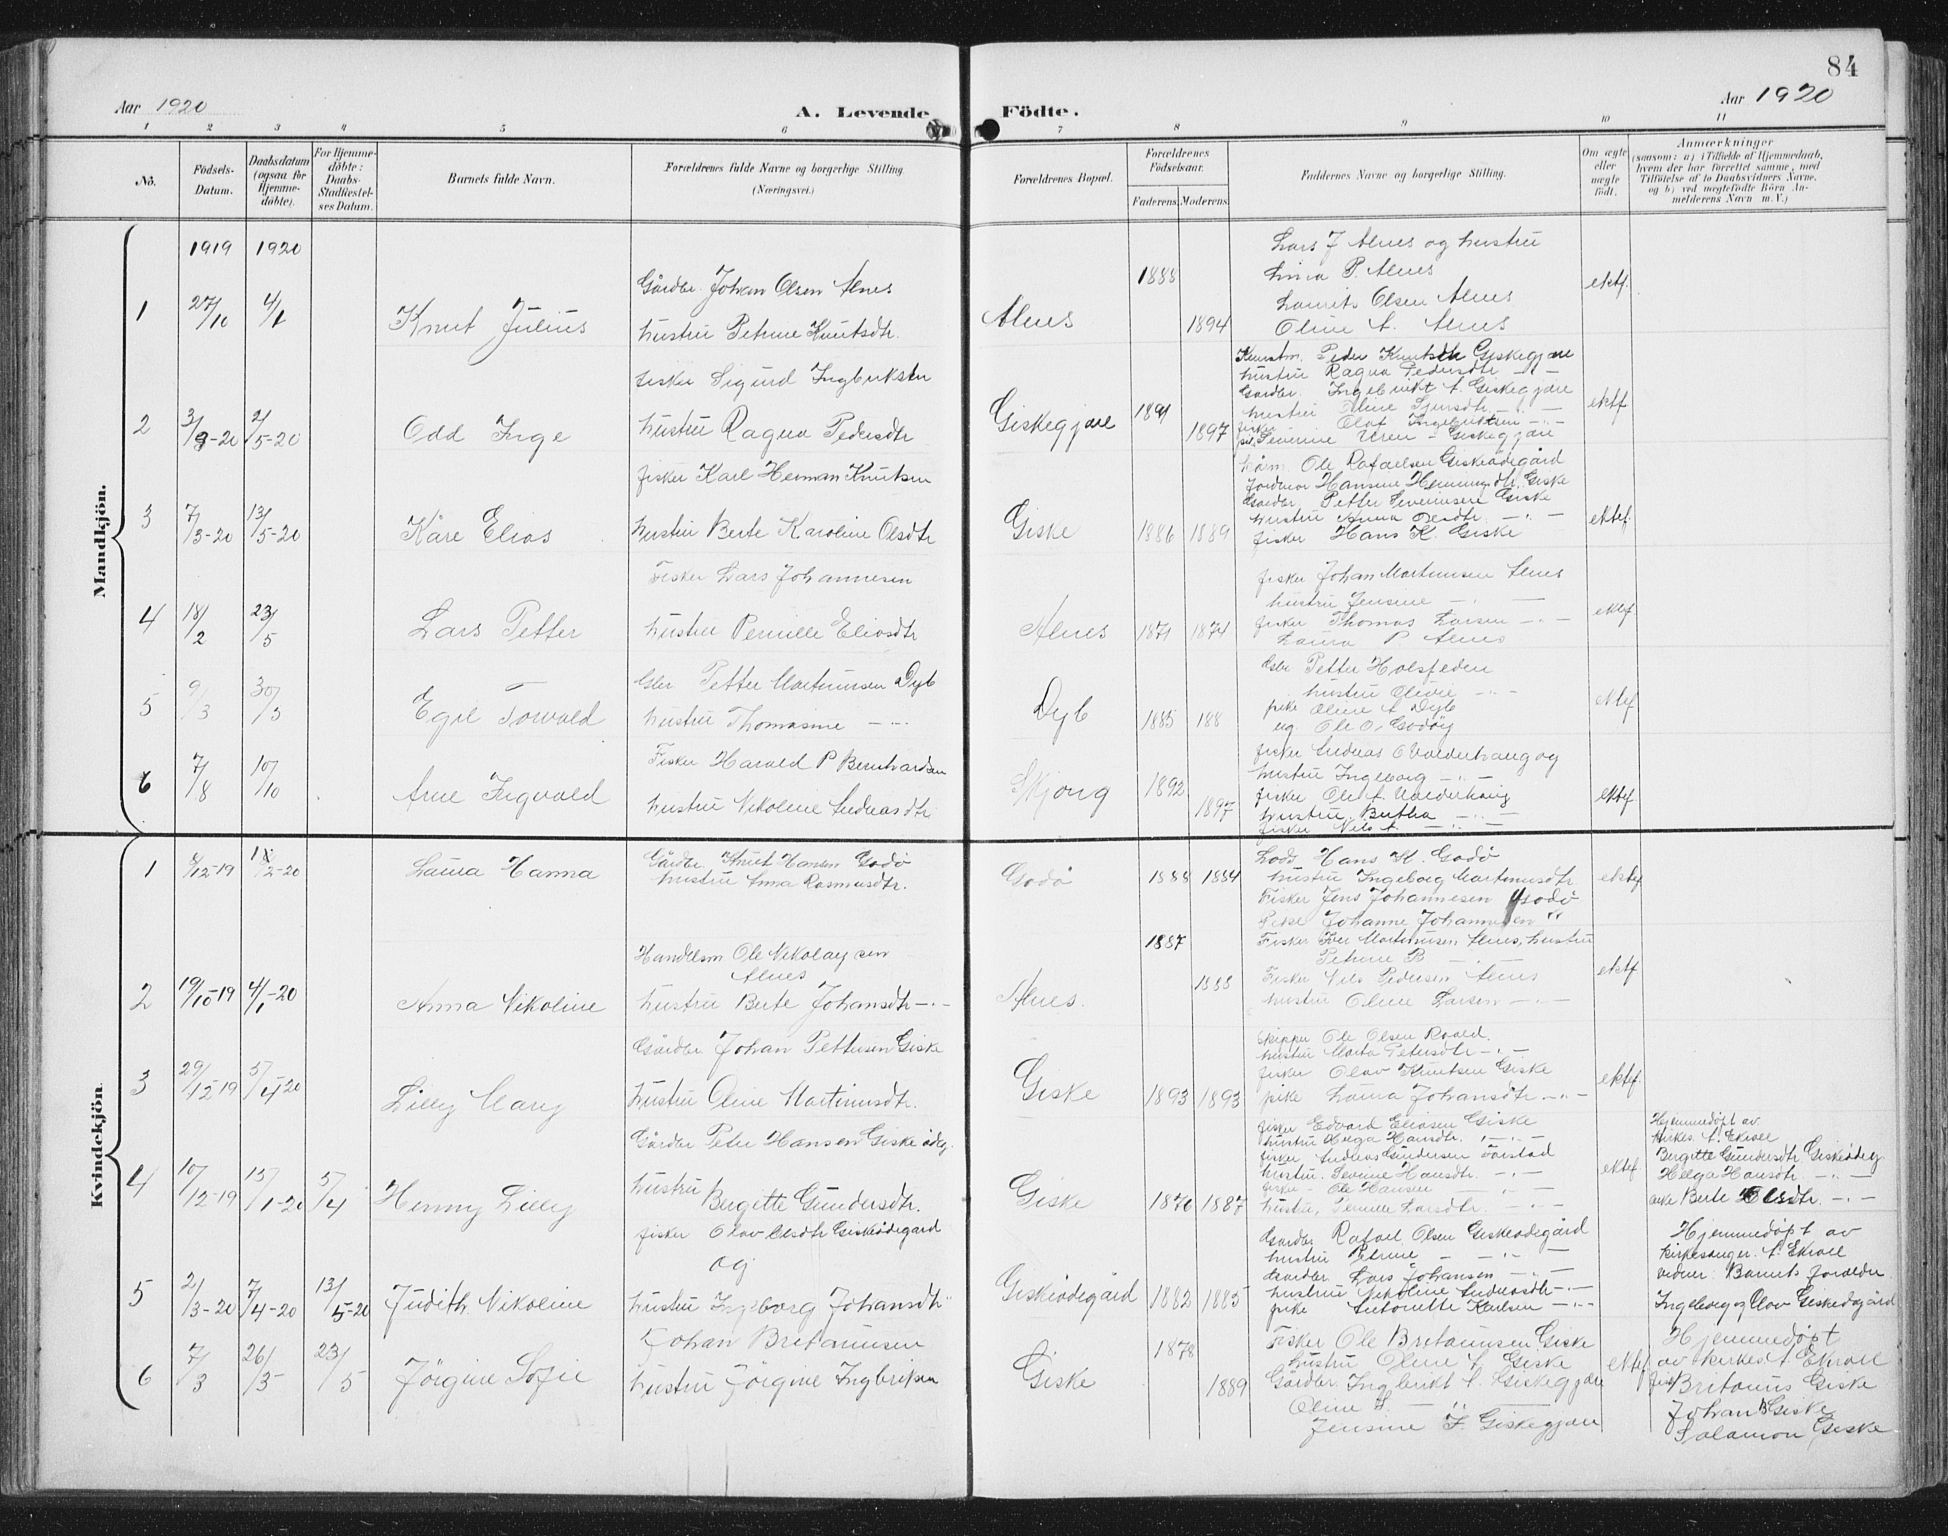 84
Aar 1920
A. Levende
Födte.
Aar 1920
1 2 3 4 5 6 7 8 9 10 11
No.
Födsels-Datum.
Daabsdatum (ogsaa for Hjemme-döbte).
For Hjemme-döbte: Daabs-Stadfæstel-ses Datum.
Barnets fulde Navn.
Forældrenes fulde Navne og borgerlige Stilling
(Næringsvei.)
Forældrenes Bopæl.
Forældrenes Födselsaar.
Faderens. Moderens.
Faddernes Navne og borgerlige Stilling.
Om ægte eller uægte födt.
Anmærkninger
(saasom: a) i Tilfælde af Hjemmedaab,
hvem der har forrettet samme, med
Tilföielse af to Daabsvidners Navne,
og b) ved uægtefödte Börn An-
melderens Navn m. V.)
Mandkjön.
1919 1920
1 27/10 4/1 Knut Julius
Gårdbr. Johan Olsen Alnes
hustru Petrine Knutsdtr.
Alnes 1888 1894
Lars J Alnes og hustru
Lina P. Alnes
Laurits Olsen Alnes
Oline A. Alnes
ektf.
2 3/3-20 2/5-20 Odd Inge
fisker Sigurd Ingbriksen
hustru Ragna Pedersdtr
Giskegjære 1891 1897
Peder Knutsen Giskegjære
hustru Ragna Pedersdtr -"-
Gårdbr. Ingebrikt A. Giskegjære
hustru Oline Sjursdtr -"-
fisker Olaf Ingebriktsen -"-
pi. Severine Uren - Giskegjære
ektf
3 7/3-20 13/5-20 Kåre Elias
fisker Karl Herman Knutsen
hustru Berte Karoline Olsdtr
Giske 1886 1889
Ole Rafaelsen Giskeødegård
Jordmor Hansine Henningsdtr. Giske
Gårdbr. Petter Severinsen Giske
hustru Anna Olsdtr. -"-
fisker Hans K. Giske
ektef.
4 18/2 23/5 Lars Petter
Fisker Lars Johannesen
hustru Pernille Eliasdtr
Alnes 1871 1874
fisker Johan Martinusen Alnes
hustru Jensine -"-
fisker Thomas Larsen -"-
Laura P Alnes
ektef.
5 9/3 30/5 Egil Torvald
Gbr Petter Martinusen Dyb
hustru Thomasine -"-
Dyb 1885 188
Gbr Petter Holsfeden
hustru Olivie -"-
pike Oline A. Dyb
ug. Ole O. Godøy
ektef.
6 7/8 10/10 Arne Ingvald
Fisker Harald P Bernhardsen
hustru Nikoline Andreasdtr
Skjong 1892 1897
fisker Andreas O Valderhaug og
hustru Ingeborg -"-
fisker Ole A. Valderhaug
hustru, Bertha -"-
fisker Nils A. -"-
ektef.
Kvindekjön.
1 8/12-19 1/2-20 Laura Hanna
Gårdbr. Knut Hansen Godø
hustru Anna Rasmusdtr.
Godø 1888 1884
Lods Hans K. Godø
hustru Ingeborg Martinusdtr
Fisker Jens Johannesen Godø
Pike Johanne Johannesen "
ektef
2 19/10-19 4/1-20 Anna Nikoline
Handelsm Ole Nikolaysen
Alnes
hustru Berte Johansdtr -"-
Alnes. 1887 1888
Fisker Iver Martinusen Alnes, hustru
Petrine B -"-
Fisker Nils Pedersen Alnes
hustru Oline Larsen -"-
ektf
3 29/12-19 5/4-20 Lilly Mary
Gårdbr. Johan Pettersen Giske
hustru Oline Martinusdtr.
Giske 1893 1893
skipper Ole Olsen Roald.
hustru Marta Petersdtr -"-
fisker Olav Knutsen Giske
pike Laura Johansdtr. -"-
ektef.
4 10/12-19 15/1-20 5/4 Henny Lilly
Gårdbr Peter Hansen Giskeødeg.
hustru Birgitte Gundersdtr.
Giske 1876 1887
fisker Edvard Eliasen Giske
hustru Helga Hansdtr. -"-
fisker Andreas Gundersen Torstad
hustru. Sevrine Hansdtr. -"-
fisker - Ole Hansen -"-
hustru, Pernille Larsdtr. -"-
ektef
Hjemmedøpt av
kirkes. A. Ekroll
Birgitte Gundersdtr Giskeødeg
Helga Hansdtr. -"-
Berte Olsdtr. -"-
5 2/3-20 7/4-20 13/5-20 Judith Nikoline
fisker Olav Olsdtr Giskeødegård
og
hustru Ingeborg Johansdtr "
Giskeødegård 1882 1885
Gårdbr. Rafael Olsen Giskeødegård
hustru Petrine -"-
Gårdbr Lars Johansen -"-
hustru Nikoline Andreasdtr. -"-
pike Antonette Karlsen -"-
Hjemmedøpt av
kirkesanger A. Ekroll
vidner: Barnets foreldre
Ingeborg og Olav Giskeødegård
6 7/3 26/3 23/5 Jörgine Sofie
Johan Britanusen
hustru Jörgine Ingbriksen
Giske 1878 1889
Fisker Ole Britanusen Giske
hustru Oline A. Giske
Gårdbr. Ingbrikt A. Giskegjære
Oline S. — " —
Jensine I. Giskegjære
ektef
Hjemmedøpt
av kirkes. A Ekroll
fisk. Britanus Giske
Johan B Giske
Salamon Giske